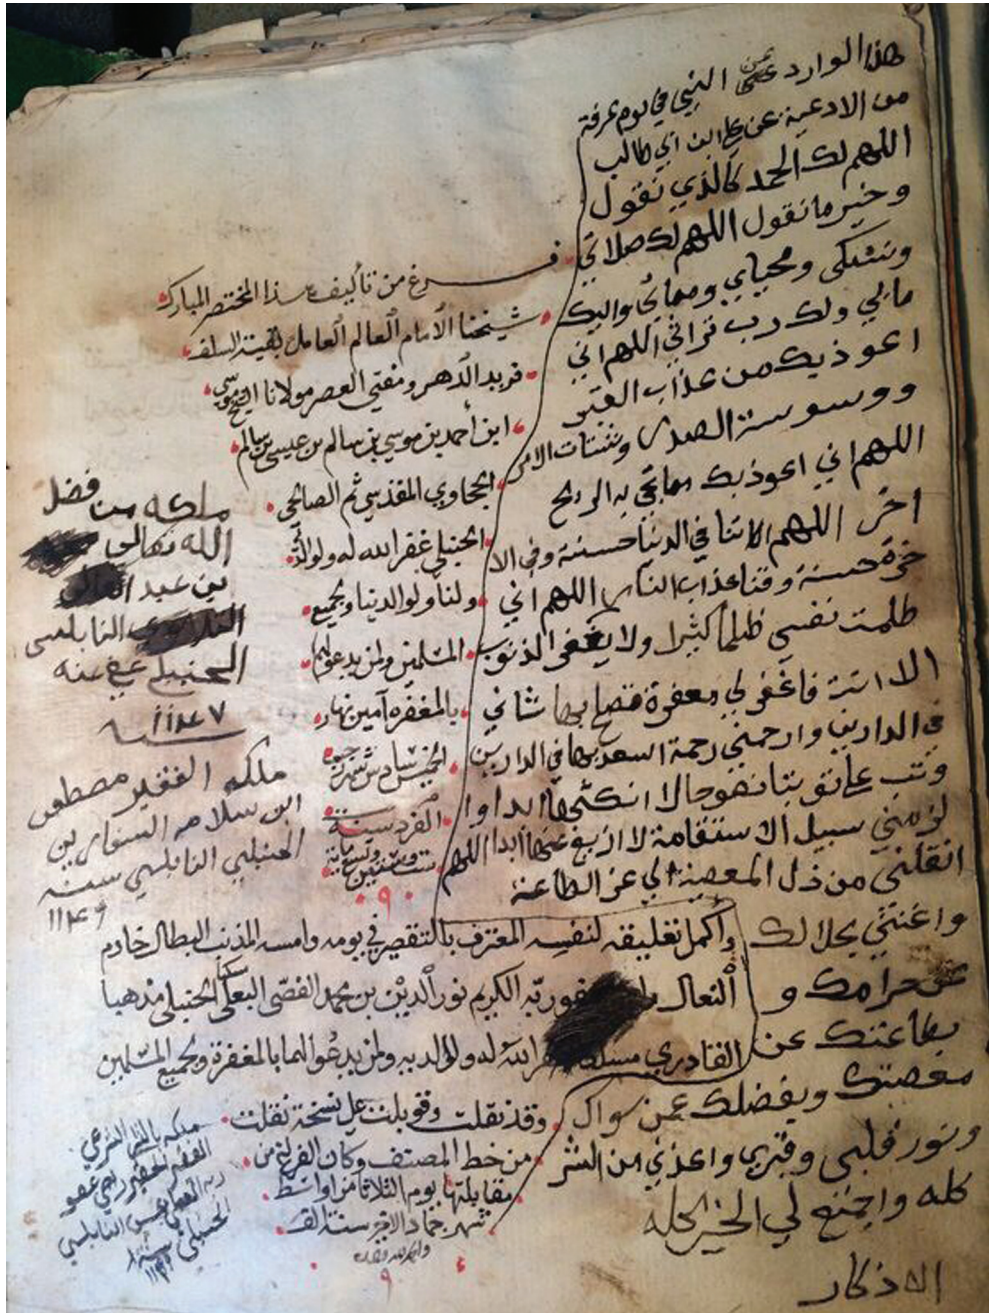 هذا الوارد عن النبي في يوم عرفة
من الادعية عن علي ابن ابي طالب
اللهم لك الحمد كالذي نقول
وخير ما نقول اللهم لك صلاتي
ونسكي ومحياي ومماتي واليك
مابي ولك رب تراثي اللهم اني
اعوذ بك من عذاب القبر
ووسوسة الصدر وشتات الامر
اللهم اني اعوذ بك مما تجي به الريح
اخر اللهم اتنا في الدنيا حسنة وفي الا
خرة حسنة وقنا عذاب النار اللهم اني
ظلمت نفسي ظلما كثيرا ولا يغفر الذنوب
الا انت فاغفر لي مغفرة تصلح بها شاني
في الدارين وارحمني رحمة اسعد بها في الدارين
وتب علي توبتا نصوحا لا انكثها ابدا وا
لزمني سبيل الاستقامة لا ازيغ عنها ابدا اللهم
انقلني من ذل المعصية الي عز الطاعة
واغنني بحلالك
عن حرامك و
بطاعتك عن
معصيتك وبفضلك عمن سواك
ونور قلبي وقبري واعذني من الشر
كله واجمع لي الخير كله
الاذكار
فرغ من تأليف هذا المختصر المبارك
شيخنا الأمام العالم العامل بقية السلف
فريد الدهر ومفتي العصر مولانا الشيخ موسى
ابن أحمد بن موسي بن سالم بن عيسى بن سالم
الحجاوي المقدسي ثم الصالحي
الحنبلي غفر الله له ولوالديه
ولنا ولوالدينا ولجميع
المسلمين ولمن يدعو لهم
بالمغفره آمين نهار
الخميس سادس شهر
الفرد سنة
ست وستين وتسعماية
٩٠
وأكمل تعليقه لنفسه المعترف بالتقصير في يومه وامسه المذنب البطال خادم
النعال عفو ربه الكريم نور الدين بن محمد الفصي البعلي الحنبلي مذهبا
القادري الله له ولوالديه ولمن يدعو لهما بالمغفرة ولجميع المسلمين
وقد نقلت وقوبلت على نسخة نقلت
من خط المصنف وكان الفراغ من
مقابلتها يوم الثلاثا من اواسط
شهر جماد الاخر سنة الف
والحمد لله وحده
ملكه من فضل
الله تعالى
بن عبد
النابلسي
الحنبلي عفي عنه
سنة ١١٤٧
ملكه الفقير مصطفى
ابن سلامه السفاريني
الحنبلي النابلسي سنه
١١٤٦
ملكه بالشرا الشرعي
الفقير الحقير راجي عفو
ربه النابلسي
الحنبلي سنة